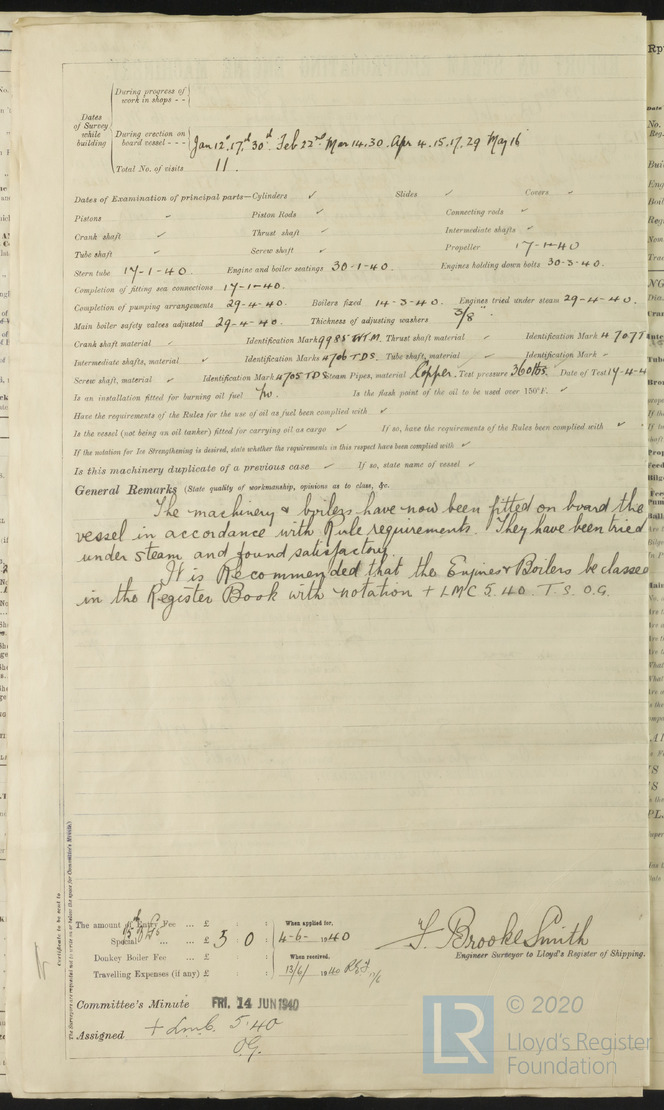 During progress of
work in shops - -
Dates
of Survey
while
building
During erection on
board vessel - - -
Jan 12, 17, 30 Feb 22 Mar 14.30. Apr 4.15.17.29 May 16
Total No. of visits 11.
Dates of Examination of principal parts—Cylinders ✓ Slides ✓ Covers ✓
Pistons ✓ Piston Rods ✓ Connecting rods ✓
Crank shaft ✓ Thrust shaft ✓ Intermediate shafts ✓
Tube shaft ✓ Screw shaft ✓ Propeller 17-1-40
Stern tube 17-1-40. Engine and boiler seatings 30-1-40. Engines holding down bolts 30-3-40.
Completion of fitting sea connections 17-1-40.
Completion of pumping arrangements 29-4-40. Boilers fixed 14-3-40. Engines tried under steam 29-4-40.
Main boiler safety valves adjusted 29-4-40. Thickness of adjusting washers 3/8".
Crank shaft material ✓ Identification Mark 9985 Thrust shaft material ✓ Identification Mark
Intermediate shafts, material ✓ Identification Marks 4706 TDS. Tube shaft, material ✓ Identification Mark ✓
Screw shaft, material ✓ Identification Mark 4705 TDS Steam Pipes, material Copper. Test pressure 360 lbs. Date of Test 17-4-4
Is an installation fitted for burning oil fuel No. Is the flash point of the oil to be used over 150°F. ✓
Have the requirements of the Rules for the use of oil as fuel been complied with ✓
Is the vessel (not being an oil tanker) fitted for carrying oil as cargo ✓ If so, have the requirements of the Rules been complied with ✓
If the notation for Ice Strengthening is desired, state whether the requirements in this respect have been complied with ✓
Is this machinery duplicate of a previous case ✓ If so, state name of vessel ✓
General Remarks (State quality of workmanship, opinions as to class, &c.
The machinery & boilers have now been fitted on board the
vessel in accordance with Rule requirements. They have been tried
under steam and found satisfactory.
It is Recommended that the Engines & Boilers be classed
in the Register Book with notation + LMC 5.40. T.S. O.G.
Certificate to be sent to
The Surveyors are requested not to write on or below the space for Committee's Minute.
The amount of Entry Fee ... £ : :
Special ... ... £ 3 : 0 :
Donkey Boiler Fee ... £ : :
Travelling Expenses (if any) £ : :
When applied for,
4-6-1940
When received,
13/6/1940
F. Brooke Smith
Engineer Surveyor to Lloyd's Register of Shipping.
Committee's Minute FRI. 14 JUN 1940
Assigned + Lmc 5.40
O.G.
LR
© 2020
Lloyd's Register
Foundation